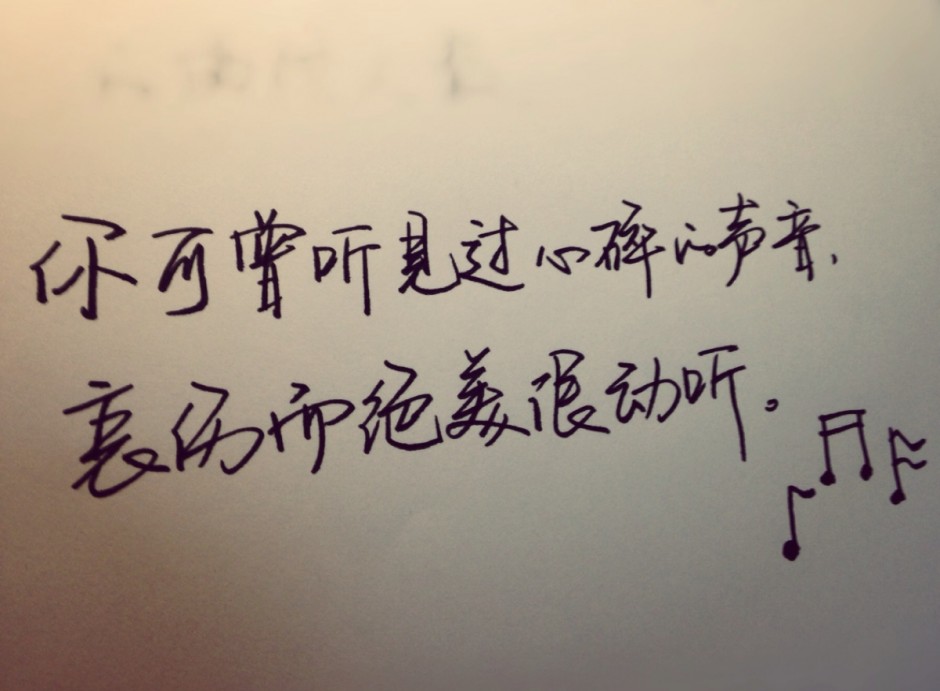 你可曾听见过心碎的声音,
哀伤而绝美很动听。